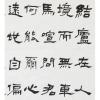 結廬在人
境而無車
馬喧問君
何能爾心
遠地自偏